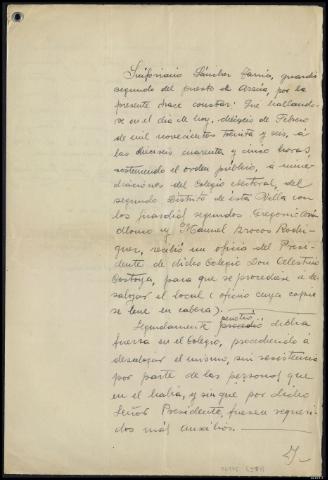 Sinforiano Sánchez García, guardia
segundo del puesto de Arzúa, por la
presente hace constar: Que hallando-
se en el día de hoy, dieciseis de Febrero
de mil novecientos treinta y seis, á
las dieciseis cuarenta y cinco horas,
sosteniendo el orden público, a inme-
diaciones del Colegio electoral, del
segundo Distrito de esta Villa con
los guardias segundos Gregorio
Alonso y Manuel Arcos Rodri-
guez, recibió un oficio del Presi-
dente de dicho Colegio Don Celestino
para que se procediese á de-
salojar el local (oficio cuya copia
se tiene en cabeza).
Seguidamente penetró procedió dicha
fuerza en el Colegio, procediendo á
desalojar el mismo, sin resistencia
por parte de las personas que
en el había, y sin que por dicho
Señor Presidente, fuesen requeri-
dos más auxilios.